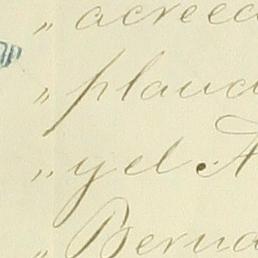 „ acreed
„ plaud
„ yel • A
„ Bernd